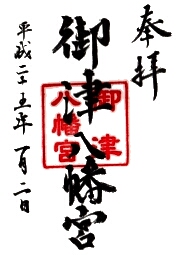 奉拝
御津八幡宮
御津
八幡宮
平成二十五年一月二日